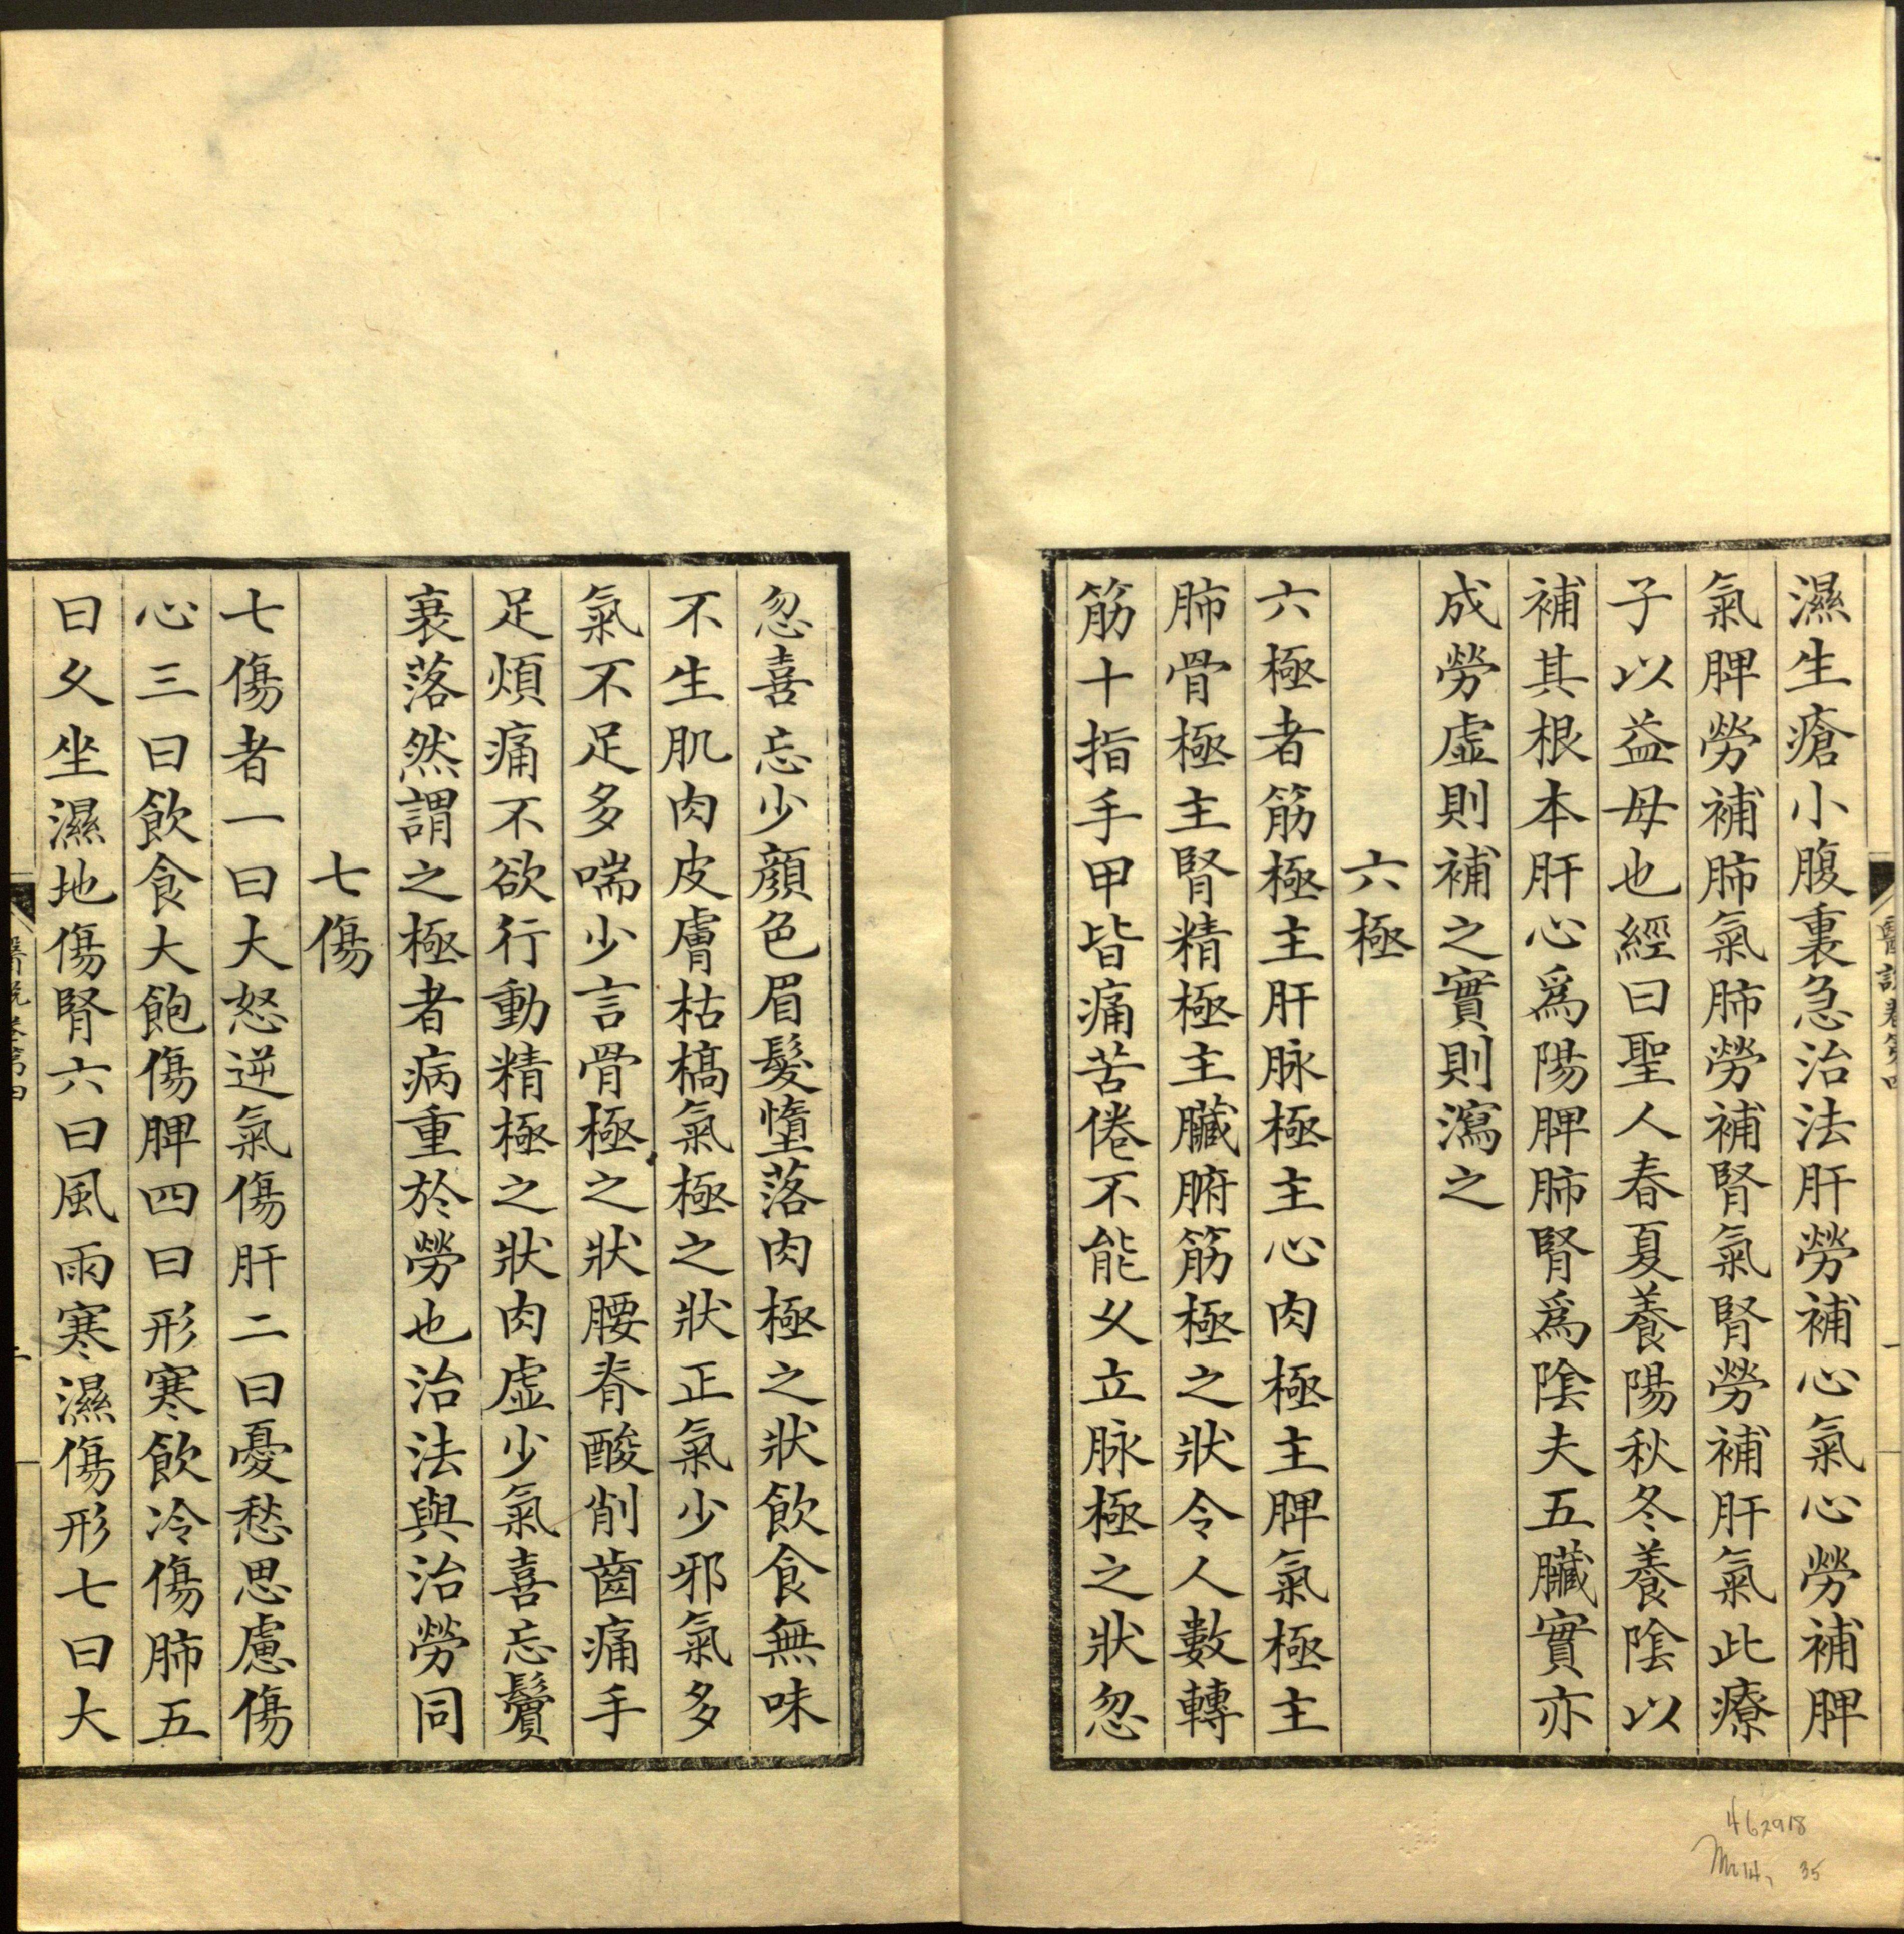 濕生瘡小腹裏急治法肝勞補心氣心勞補脾
氣脾勞補肺氣肺勞補腎氣腎勞補肝氣此療
子以益母也經曰聖人春夏養陽秋冬養陰以
補其根本肝心爲陽脾肺腎爲陰夫五臟實亦
成勞虛則補之實則瀉之
六極
六極者筋極主肝脉極主心肉極主脾氣極主
肺骨極主腎精極主臟腑筋極之狀令人數轉
筋十指手甲皆痛苦倦不能乆立脉極之狀忽
忽喜忘少顔色眉髮墮落肉極之狀飲食無味
不生肌肉皮膚枯槁氣極之狀正氣少邪氣多
氣不足多喘少言骨極之狀腰脊酸削齒痛手
足煩痛不欲行動精極之狀肉虛少氣喜忘鬢
衰落然謂之極者病重於勞也治法與治勞同
七傷
七傷者一曰大怒逆氣傷肝二曰憂愁思慮傷
心三曰飲食大飽傷脾四曰形寒飲冷傷肺五
曰乆坐濕地傷腎六曰風雨寒濕傷形七曰大
醫説卷第四
462918
35